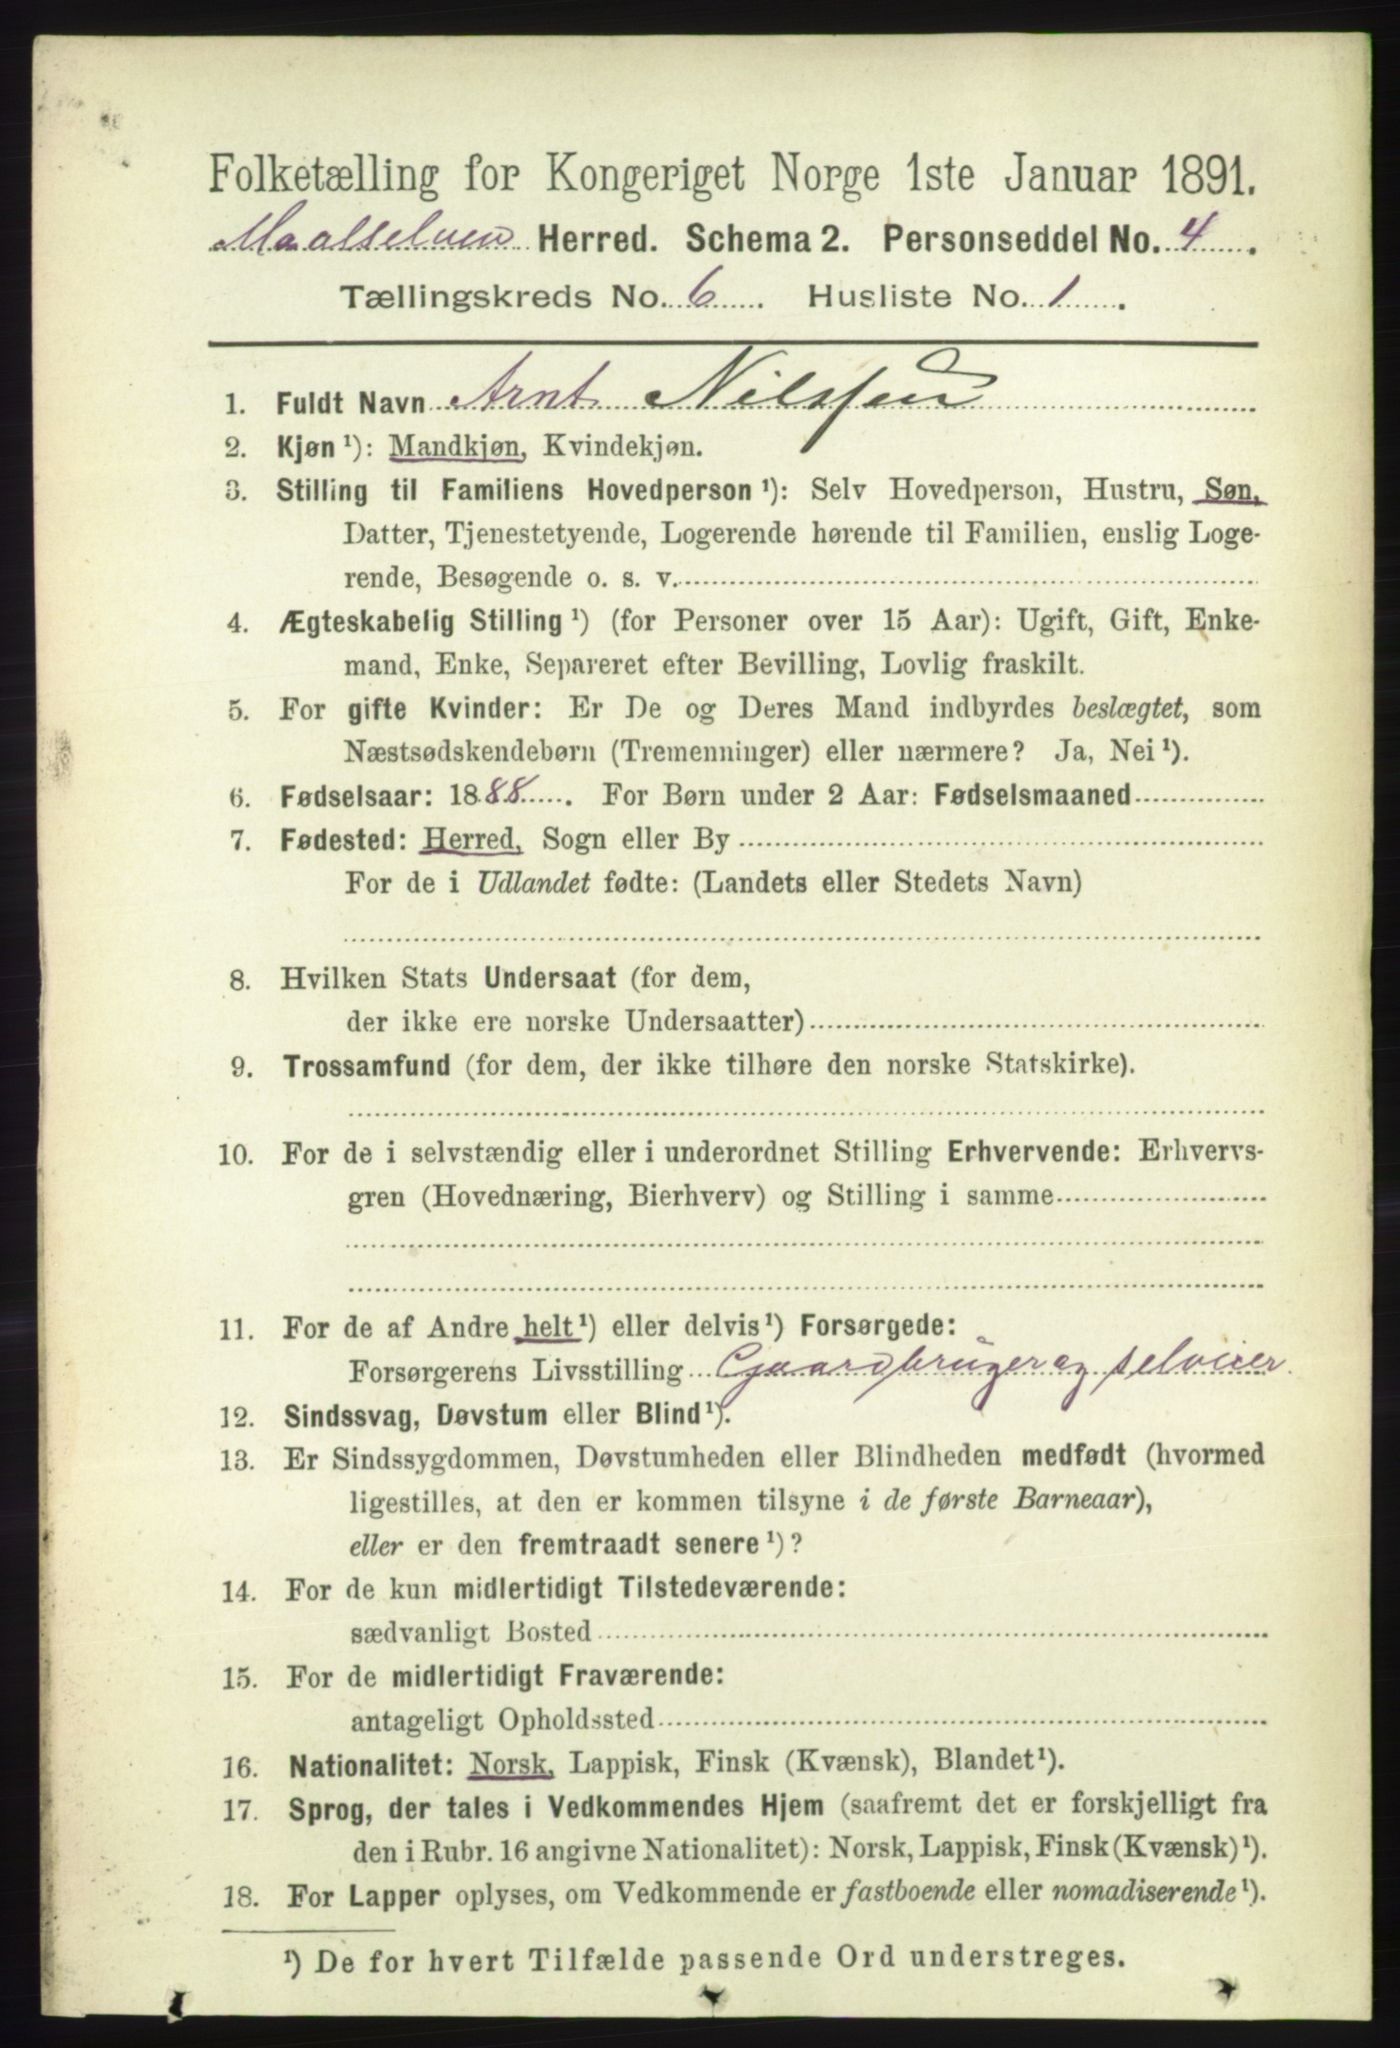 Folketælling for Kongeriget Norge 1ste Januar 1891.
Maalselven Herred. Schema 2. Personseddel No. 4.
Tællingskreds No. 6. Husliste No. 1.
1. Fuldt Navn Arnt Nilssen
2. Kjøn ¹): Mandkjøn, Kvindekjøn.
3. Stilling til Familiens Hovedperson ¹): Selv Hovedperson, Hustru, Søn,
Datter, Tjenestetyende, Logerende hørende til Familien, enslig Loge-
rende, Besøgende o. s. v.
4. Ægteskabelig Stilling ¹) (for Personer over 15 Aar): Ugift, Gift, Enke-
mand, Enke, Separeret efter Bevilling, Lovlig fraskilt.
5. For gifte Kvinder: Er De og Deres Mand indbyrdes beslægtet, som
Næstsødskendebørn (Tremenninger) eller nærmere? Ja, Nei ¹).
6. Fødselsaar: 1888. For Børn under 2 Aar: Fødselsmaaned
7. Fødested: Herred, Sogn eller By
For de i Udlandet fødte: (Landets eller Stedets Navn)
8. Hvilken Stats Undersaat (for dem,
der ikke ere norske Undersaatter)
9. Trossamfund (for dem, der ikke tilhøre den norske Statskirke).
10. For de i selvstændig eller i underordnet Stilling Erhvervende: Erhvervs-
gren (Hovednæring, Bierhverv) og Stilling i samme
11. For de af Andre helt ¹) eller delvis ¹) Forsørgede:
Forsørgerens Livsstilling Gaardbruger og selveier
12. Sindssvag, Døvstum eller Blind ¹).
13. Er Sindssygdommen, Døvstumheden eller Blindheden medfødt (hvormed
ligestilles, at den er kommen tilsyne i de første Barneaar),
eller er den fremtraadt senere ¹)?
14. For de kun midlertidigt Tilstedeværende:
sædvanligt Bosted
15. For de midlertidigt Fraværende:
antageligt Opholdssted
16. Nationalitet: Norsk, Lappisk, Finsk (Kvænsk), Blandet ¹).
17. Sprog, der tales i Vedkommendes Hjem (saafremt det er forskjelligt fra
den i Rubr. 16 angivne Nationalitet): Norsk, Lappisk, Finsk (Kvænsk) ¹).
18. For Lapper oplyses, om Vedkommende er fastboende eller nomadiserende ¹).
¹) De for hvert Tilfælde passende Ord understreges.